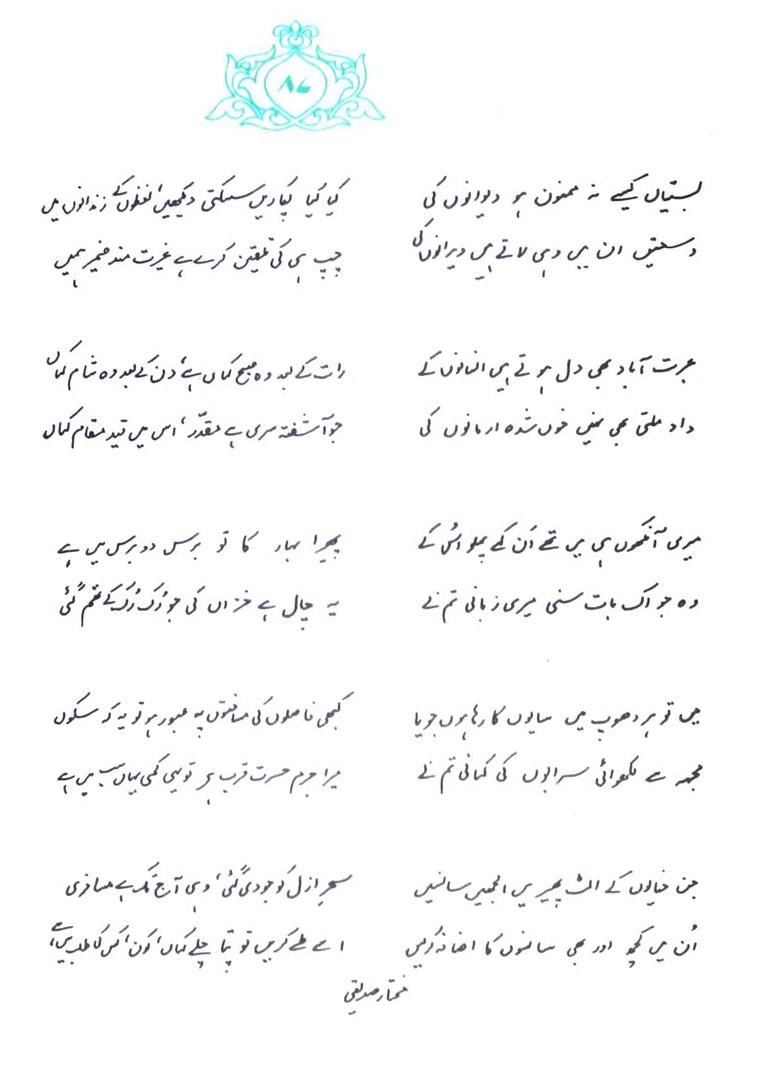 ۸۷
بستیاں کیسے نہ ممنون ہو دیوانوں کی
وسعتیں ان میں وہی لاتے ہیں ویرانوں کی
کیا کیا پکاریں سسکتی دیکھیں، لفظوں کے زندانوں میں
چپ ہی کی تلقین کرے ہے غیرت مند ضمیر ہمیں
عبرت آباد بھی دل ہوتے ہیں انسانوں کے
داد ملتی بھی نہیں خوں شدہ ارمانوں کی
رات کے بعد وہ صبح کہاں ہے، دن کے بعد وہ شام کہاں
جو آشفتہ سری ہے مقدّر، اس میں قید مقام کہاں
میری آنکھوں ہی میں تھے اَن کہے پہلو اس کے
وہ جو اک بات سنی میری زبانی تم نے
پھیرا بہار کا تو برس دو برس میں ہے
یہ چال ہے خزاں کی جو رُک رُک کے تھم گئی
میں تو ہر دھوپ میں سایوں کا رہا ہوں جویا
مجھ سے لکھوائی سرابوں کی کہانی تم نے
کبھی فاصلوں کی مسافتوں پہ عبور ہو تو یہ کہہ سکوں
میرا جرم حسرت قرب ہے تو یہی کمی یہاں سب میں ہے
جن خیالوں کے الٹ پھیر میں الجھیں سانسیں
اُن میں کچھ اور بھی سانسوں کا اضافہ کر لیں
سحرِ ازل کو جو دی گئی، وہی آج تک ہے مسافری
اسے طے کریں تو پتا چلے کہاں، کون، کس کی طلب میں ہے
مختار صدیقی